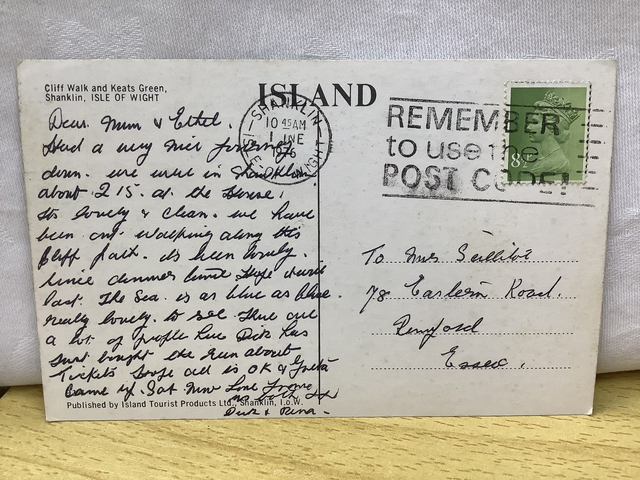 Cliff Walk and Keats Green,
Shanklin, ISLE OF WIGHT
ISLAND
SHANKLIN
10 45 AM
1 JNE
1976
REMEMBER
to use the
POST CODE!
8½
Dear Mum & Ethel.
Had a very nice journey
down. we were in Shanklin
about 2 15. at the House.
Its lovely & clean. we have
been out walking along this
Cliff path. its been lovely
since dinner time Hope it will
last. The Sea is as blue as blue.
really lovely. to see. There are
a lot of people here Dick has
just bought the run about
Tickets hope all is OK &
came up. Sat. Love from
us both xx
Dick & Rena.
To Mrs
78 Eastern Road.
Romford
Essex.
Published by Island Tourist Products Ltd., Shanklin, I.o.W.